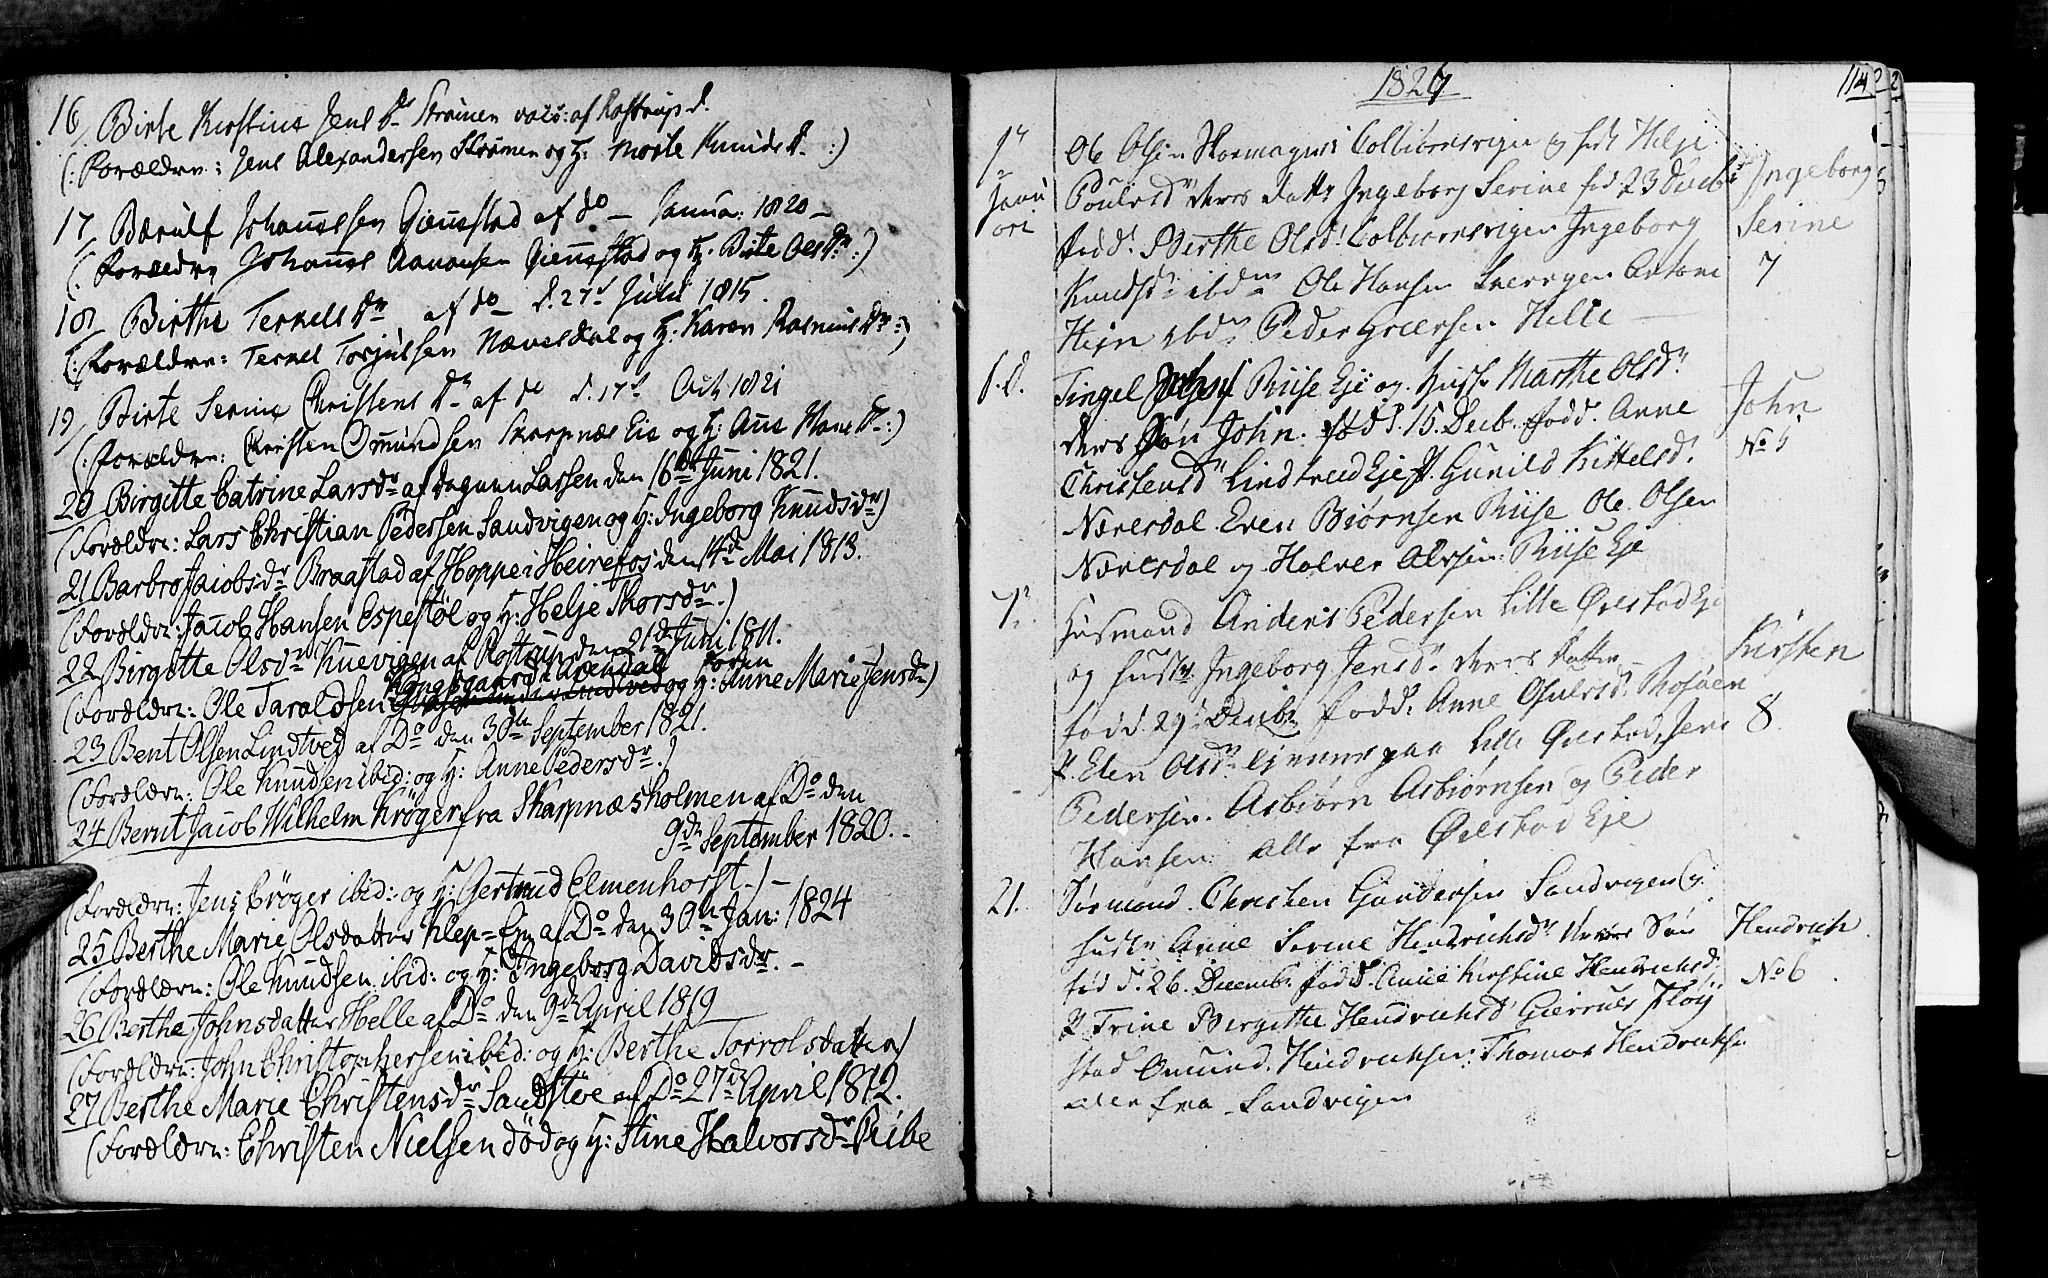 16/ Birte Kirstine Jens Dr Strömen vacs: af Rostrup d.
(: Forældre: Jens Alexandersen Strømen og H: Marte Knuds Dr :)
17 Bærulf Johannessen Gjennestad af do — Janua: 1820 —
(: Forældre Johannes Aanonsen Gjennestad og H. Birte Ols Dr :)
18/ Birthe Terkels Dr af do d. 27de Julii 1815.
(: Forældre: Terkel Torjulsen Næversdal og H: Karen Rasmus Dr :)
19/ Birte Serine Christens Dr af do d. 17de Oct. 1821
(: Forældre: Christen Omundsen Skarpnæs Eie og H: Ans Dr :)
20 Birgitte Catrine Larsdr af Dagmann Lassen den 16de Juni 1821.
(Forældre: Lars Christian Pedersen Sandvigen og H: Ingeborg Knudsdr)
21 Barbro Jacobsdr Braastad af Hoppe i Heirefos den 14de Mai 1813.
(Forældre: Jacob Hansen Espestøl og H: Helje Thorsdr.)
22 Birgitte Olsdr Knevigen af Rostrup den 21de Juni 1811.
(Forældre: Ole Taraldsen og H: Anne Marie Jensdr)
23 Bent Olsen Lindtved af Do den 30te September 1821.
(Forældre: Ole Knudsen ibid: og H: Anne Pedersdr.)
24 Bernt Jacob Wilhelm Krøger fra Skarpnæsholmen af Do den
9de September 1820. -
(Forældre: Jens Crøger ibid: og H: Gertrud Elmenhorst.) -
25 Berthe Marie Olsdatter Klep=Eje af Do den 30te Jan: 1824
(Forældre: Ole Knudsen ibid: og H: Ingeborg Davidsdr. -
26 Berthe Johnsdatter Helle af Do den 9de April 1819
(Forældre: John Christophersen ibid: og H: Berthe Torrolsdatter)
27 Berthe Marie Christensdr Sandstøe af Do 27de April 1812.
(Forældre: Christen Nielsen død og H: Stine Halvorsdr Ribe
1826
114
1ste Janu ari
Ole Olsen Colbiørnsvigen og Helje
Poulsdr deres Datter Ingeborg Serine fød 23 Decbr
Ingeborg Serine 7
fadd. Berthe Olsd. Colbiørnsvigen Ingeborg
Knudsdr ibdm Ole Hansen Antoni
Hein ibdm Peder Helle
s.d. Tingel Riise Eje og Hustr Marthe Olsdr
John No 5
deres Søn John. fød d. 15 Decbr fadd. Anne
Christensdr Lindtved Eje P. Gunild Kittelsd.
Næversdal Even Biørnsen Riise Ole Olsen
Næversdal og Halvor Riise Eje
7de Husmand Anders Pedersen Lille Ørestad Eje
Kirsten 8
og Hustr Ingeborg Jensdr deres Datter
fød d. 29 Decbr fadd. Anne
P. Elen Olsdr paa Lille Ørestad, Jens
Pedersen Asbiørn Asbiørnsen og Peder
Hansen alle fra Ørestad Eje
21. Sørmand Christen Gundersen Sandvigen og
Hendrich No 6
Hustr Anne Serine Hendrichsdr deres Søn
fød d. 26. Decembr fadd. Anne Kirstine Hendrichsd.
P Trine Birgitthe Hendrichsd Fløy
stad Omund Hendrichsen Thomas Hendrichsen
alle fra Sandvigen